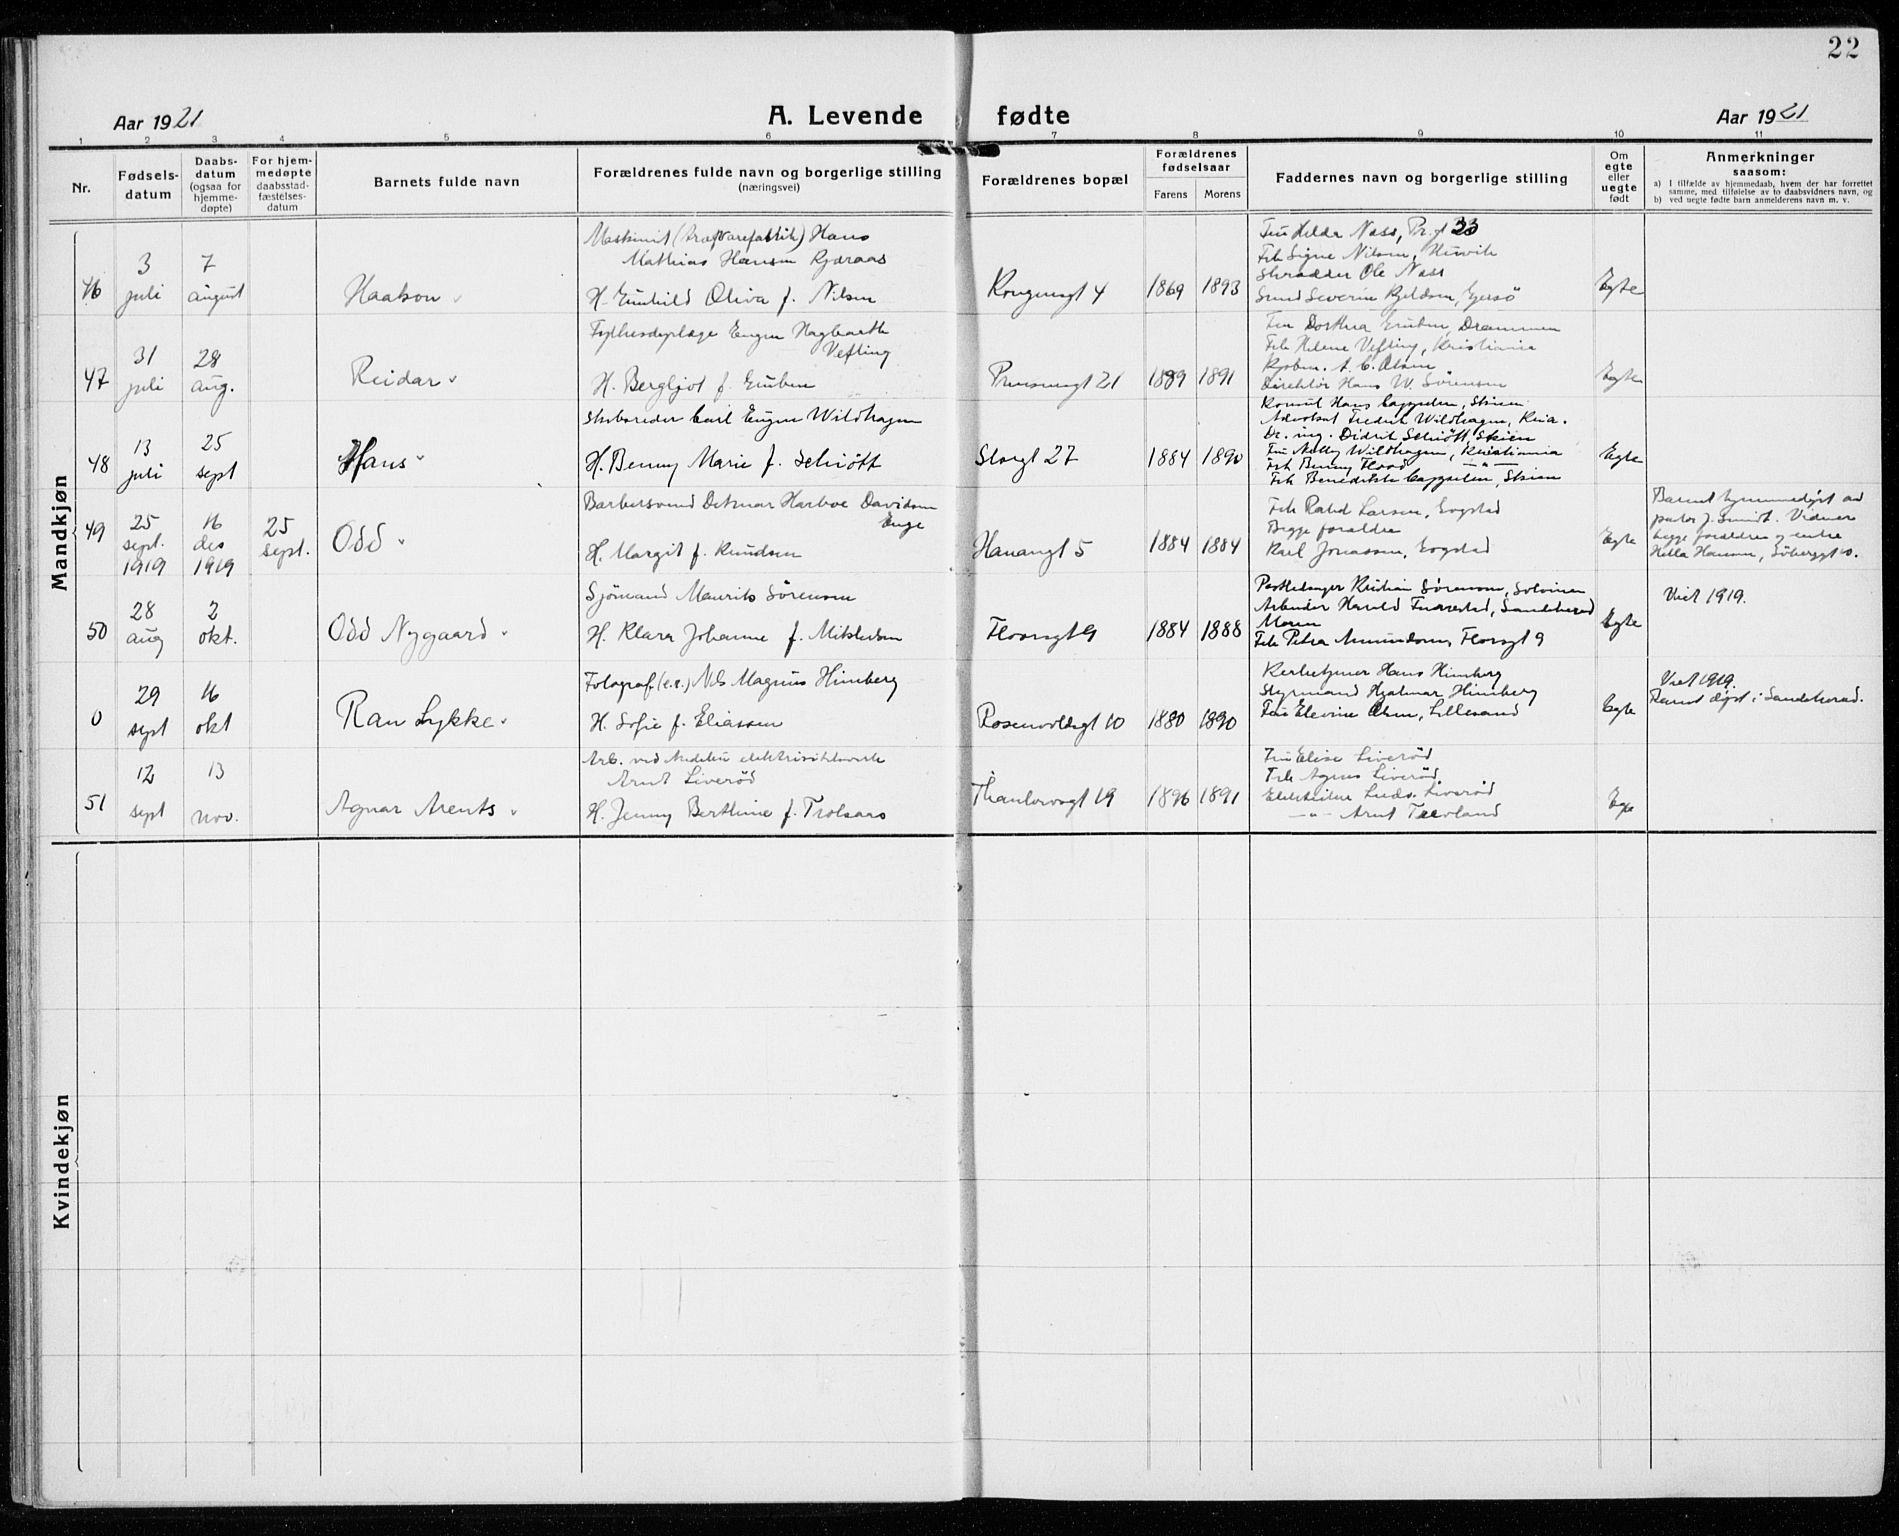 22
Aar 1921 A. Levende fødte Aar 1921
1 2 3 4 5 6 7 8 9 10 11
Nr.
Fødsels-
datum
Daabs-
datum
(ogsaa for
hjemme-
døpte)
For hjem-
medøpte
daabsstad-
fæstelses-
datum
Barnets fulde navn
Forældrenes fulde navn og borgerlige stilling
(næringsvei)
Forældrenes bopæl
Forældrenes
fødselsaar
Farens Morens
Faddernes navn og borgerlige stilling
Om
egte
eller
uegte
født
Anmerkninger
saasom:
a) I tilfælde av hjemmedaab, hvem der har forrettet
samme, med tilføielse av to daabsvidners navn, og
b) ved uegte fødte barn anmelderens navn m. v.
Mandkjøn
46
3
juli
7
august
Haakon
Maskinist (Trævarefabrik) Hans
Mathias Hansen Kjæraas
H. Gunhild Oliva f. Nilsen
Kongensgt 4
1869 1893
Fru Hilda Næss, Pr.gt 33
Frk Signe Nilsen,
Skrædder Ole Næss
Severin Kjeldsen,
Egte
47
31
juli
28
aug.
Reidar
Hagbarth
Vefting
H. Bergljot f. Gruben
Prinsensgt 21
1889 1891
Fru Dorthea Gruben, Drammen
Frk Helene Vefting, Kristiania
Kjøbm. A. C. Olsen
Direktør Hans W. Sørensen
Egte
48
13
juli
25
sept
Hans
Skibsreder Carl Eugen Wildhagen
H. Benny Marie f. Schiøtt
Storgt 27
1884 1890
Konsul Hans Cappelen, Skien
Advokat Fredrik Wildhagen, Kria.
Dr. ing. Didrik Schiøtt, Skien
Fru Nelly Wildhagen, Kristiania
Frk Benny Flood —"—
Frk Benedikte Cappelen, Skien
Egte
49
25
sept.
1919
16
des
1919
25
sept.
Odd
Barbersvend Ditmar Harboe Davidsen
Enge
H. Margit f. Knudsen
Havangt 5
1884 1884
Frk Larsen, Bogstad
Begge forældre
Karl Jonassen, Bogstad
Egte
Barnet hjemmedøpt av
pastor J. Smidt. Vidner
begge forældre og enke
Hella Hansen, Søberggt 10.
50
28
aug
2
okt.
Odd Nygaard
Sjømand Maurits Sørensen
H. Klara Johanne f. Mikkelsen
Floorsgt 9
1884 1888
Kristian Sørensen,
Arbeider Harald Sandeherad
Moren
Frk Petra Amundsen, Floorsgt 9
Egte
Viet 1919.
0
29
sept
16
okt
Ran Lykke
Fotograf (e.s.) Nils Magnus Himberg
H. Sofie f. Eliassen
Rosenvoldsgt 10
1880 1890
Hans Himberg
Styrmand Hjalmar Himberg
Fru Elevine Olsen, Lillesand
Egte
Viet 1919.
Barnet døpt i Sandeherad.
51
12
sept
13
nov.
Agnar Arents
Arb. ved elektricitetsverk
Arnt Liverød
H. Jenny Berthine f. Trolsaas
Thaulowsgt 19
1896 1891
Fru Elise Liverød
Frk Agnes Liverød
Ludv. Liverød
—"— Arnt
Egte
Kvindekjøn